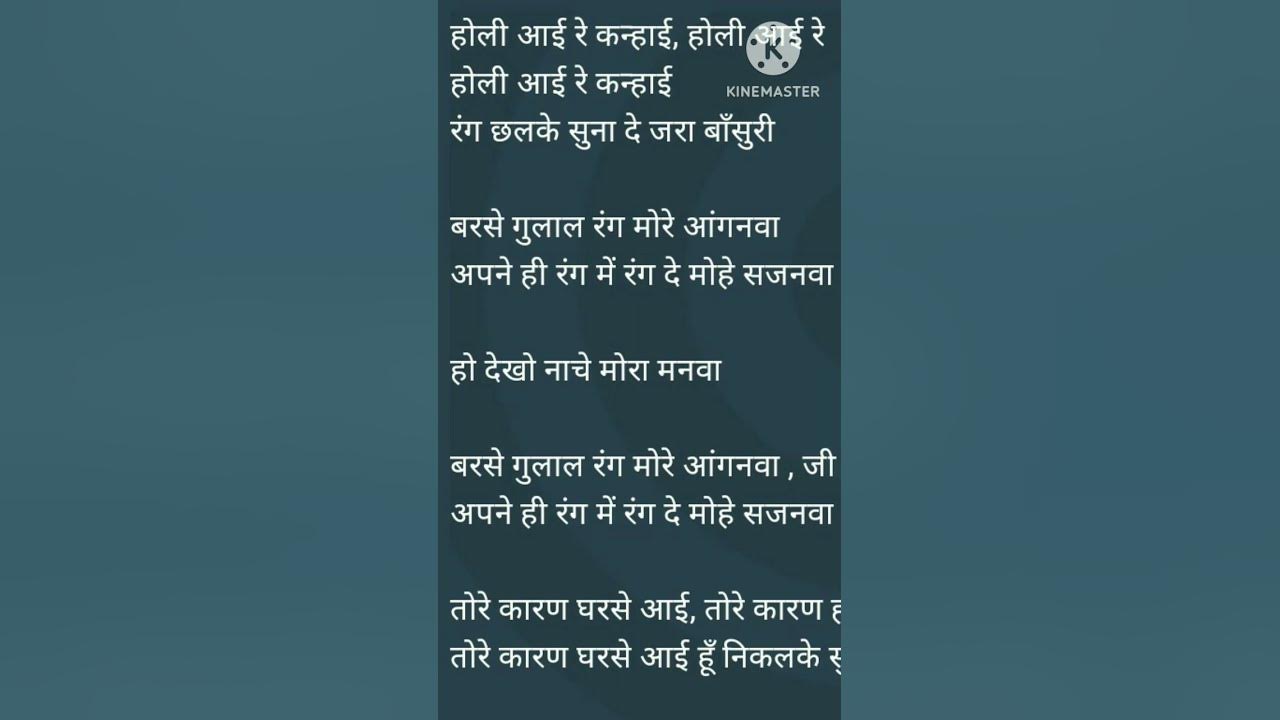 होली आई रे कन्हाई, होली आई रे
होली आई रे कन्हाई
KINEMASTER
रंग छलके सुना दे जरा बाँसुरी
बरसे गुलाल रंग मोरे आंगनवा
अपने ही रंग में रंग दे मोहे सजनवा
हो देखो नाचे मोरा मनवा
बरसे गुलाल रंग मोरे आंगनवा , जी
अपने ही रंग में रंग दे मोहे सजनवा
तोरे कारण घरसे आई, तोरे कारण
तोरे कारण घरसे आई हूँ निकलके